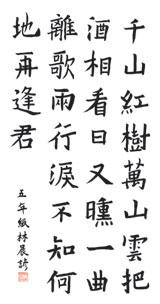 千山紅樹萬山雲把
酒相看日又曛一曲
離歌兩行淚不知何
地再逢君
五年級林晨